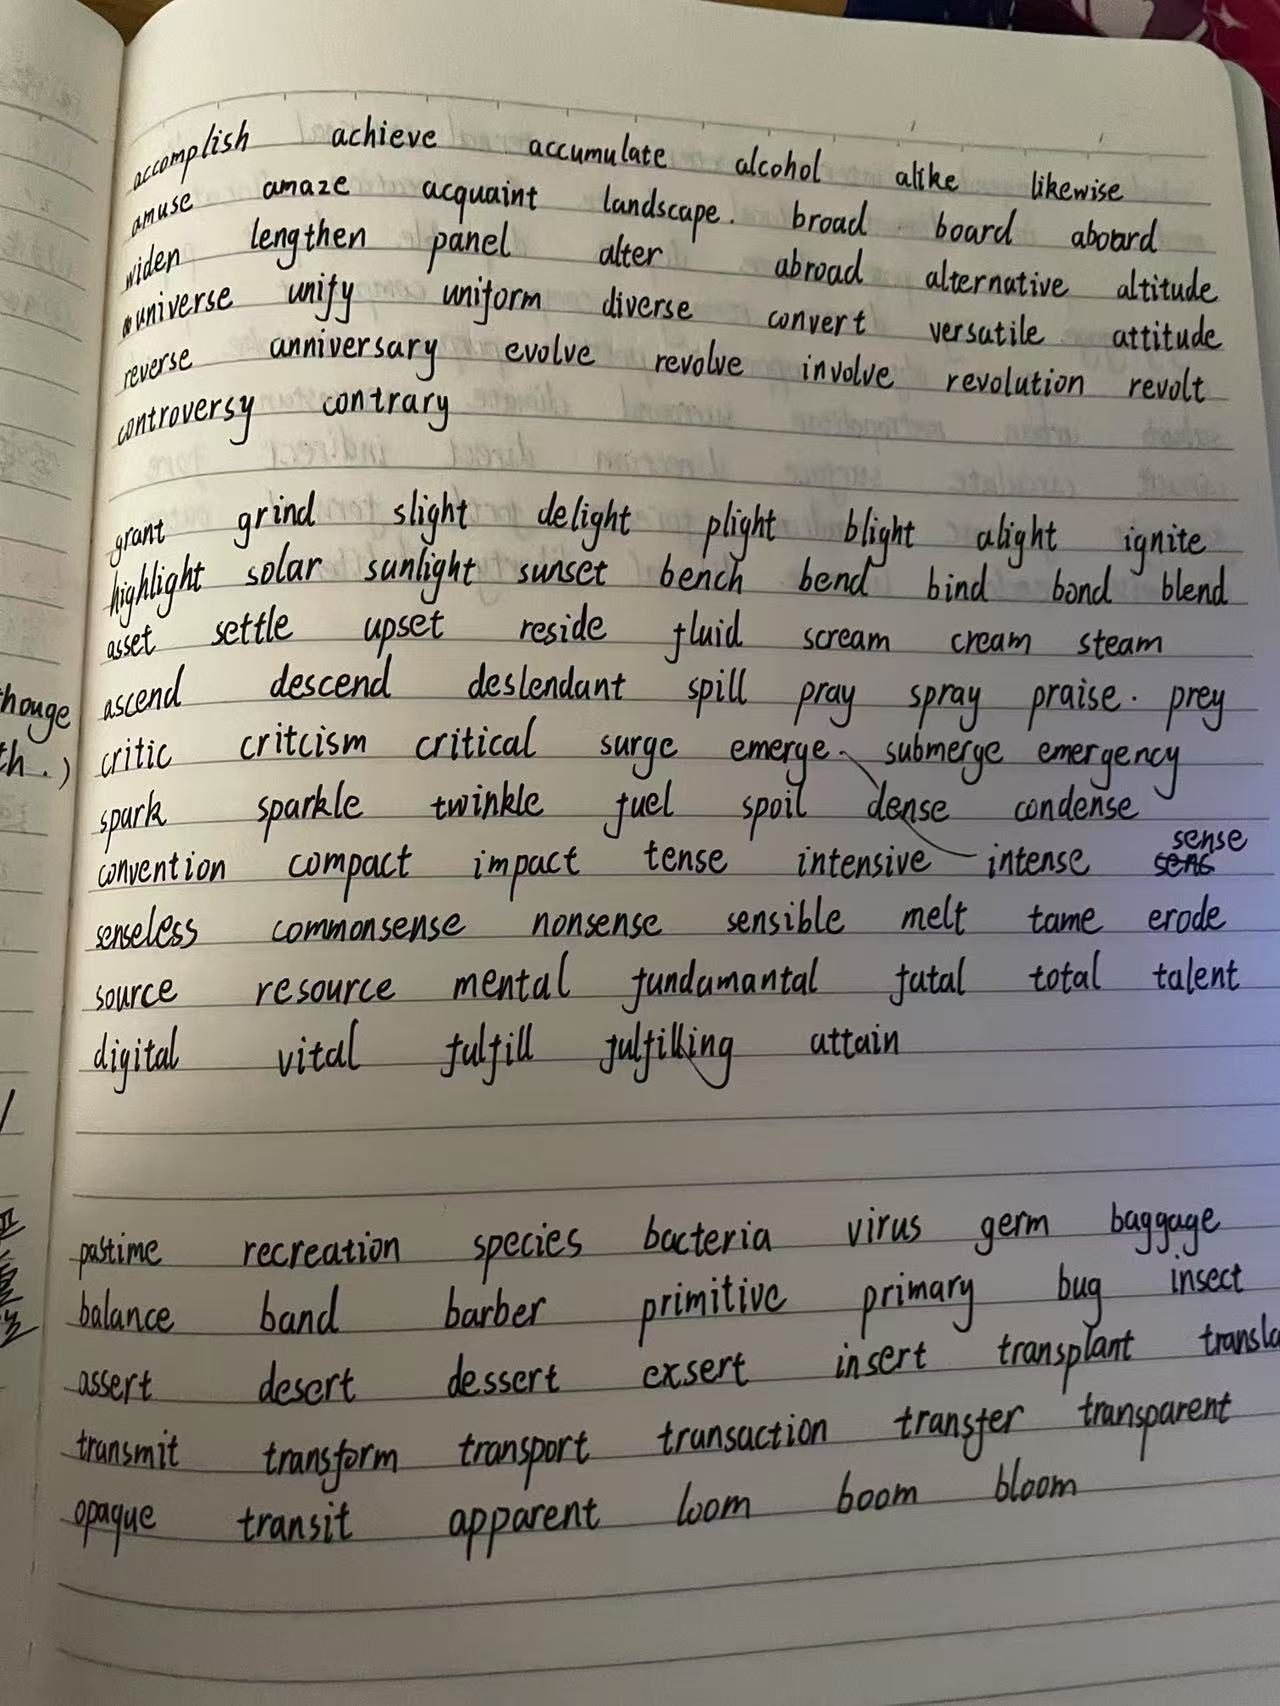 accomplish achieve accumulate alcohol alike likewise
amuse amaze acquaint landscape. broad board aboard
widen lengthen panel alter abroad alternative altitude
universe unify uniform diverse convert versatile attitude
reverse anniversary evolve revolve involve revolution revolt
controversy contrary
grant grind slight delight plight blight alight ignite
highlight solar sunlight sunset bench bend bind bond blend
asset settle upset reside fluid scream cream steam
ascend descend deslendant spill pray spray praise. prey
houge
critic critcism critical surge emerge. submerge emergency
th.)
spark sparkle twinkle fuel spoil dense condense
sense
convention compact impact tense intensive intense sens
senseless commonsense nonsense sensible melt tame erode
source resource mental fundamantal fatal total talent
digital vital fulfill fulfilling attain
pastime recreation species bacteria virus germ baggage
balance band barber primitive primary bug insect
assert desert dessert exsert insert transplant transla
transmit transform transport transaction transfer transparent
opaque transit apparent loom boom bloom